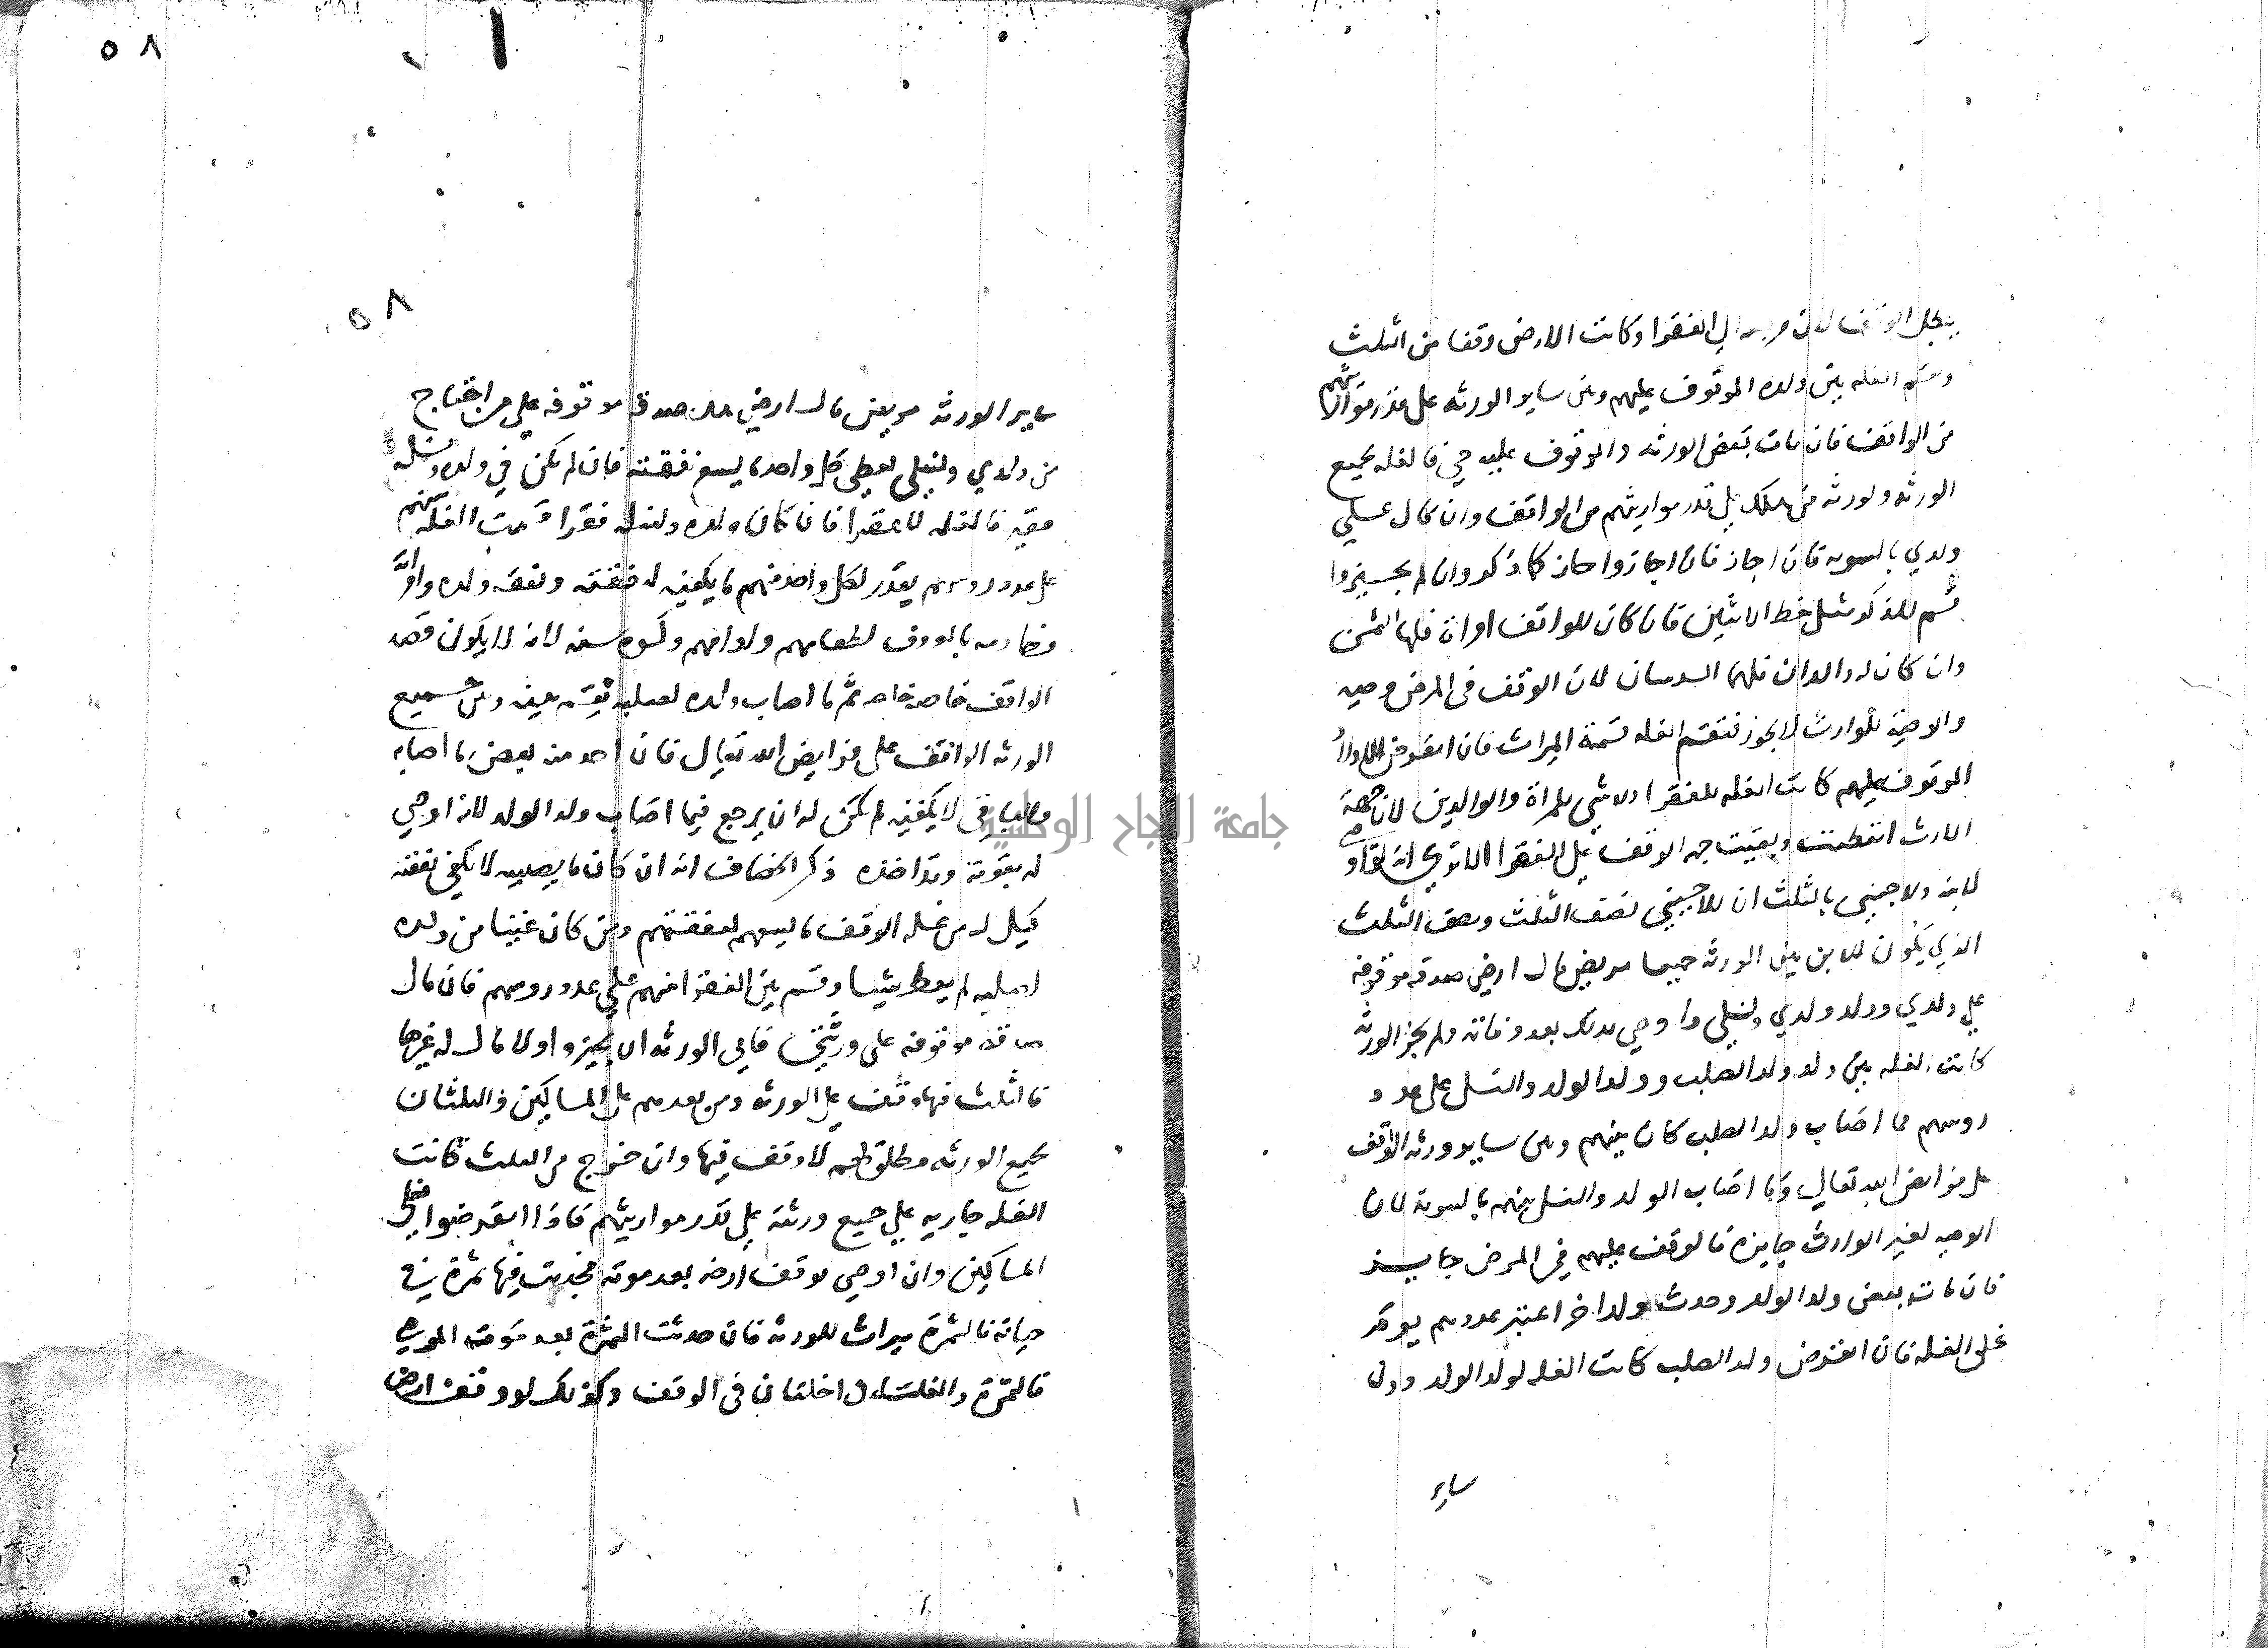 يبطل الوقف لان مرجعه الى الفقرا وكانت الارض وقفا من الثلث
وتقسم الغله بين ولده الموقوف عليهم وبين ساير الورثه على قدر مواريثهم
من الواقف فان مات بعض الورثه والموقوف عليه حي فالغله لجميع
الورثه ولورثه من هلك على قدر مواريثهم من الواقف وان قال على
ولدي بالسويه فان اجاز فان اجازوا جاز كما ذكر وان لم يجيزوا
قسم للذكر مثل حظ الانثيين فان كان للواقف امراة فلها الثمن
وان كان له والدان فلهما السدسان لان الوقف في المرض وصيه
والوصية للوارث لا يجوز فتقسم الغله قسمة الميراث فان انقرض الاولاد
الموقوف عليهم كانت الغله للفقرا ولا شي للمراة والوالدين لان جهة
الارث انقطعت وبقيت جهه الوقف على الفقرا الا ترى انه لو اوصى
لابنه ولاجنبي بالثلث ان للاجنبي نصف الثلث ونصف الثلث
الذي يكون للابن بين الورثه جميعا مريض قال ارضي صدقه موقوفه
على ولدي وولد ولدي ونسلي واوصى بذلك بعد وفاته ولم يجز الورثه
كانت الغله بين ولد ولد الصلب وولد الولد والنسل على عدد
روسهم مما اصاب ولد الصلب كان بينهم وبين ساير ورثه الواقف
على فرايض الله تعالى وما اصاب الولد والنسل بينهم بالسويه لان
الوصيه لغير الوارث جايزه فالوقف عليهم في المرض جايز
فان مات بعض ولد الولد وحدث ولد اخر اعتبر عددهم يوم
على الغله فان انقرض ولد الصلب كانت الغله لولد الولد وان
ساير
٥٨
٥٨
ساير الورثه مريض قال ارضي هذه صدقه موقوفه على من احتاج
من ولدي ونسلي يعطى كل واحد ما يسع نفقته فان لم يكن في ولده ونسله
فقير فالغله للفقرا فان كان ولده ونسله فقرا قسمت الغله بينهم
على عدد روسهم يقدر لكل واحد منهم ما يكفيه له نفقته ونفقه ولده وامراته
وخادمه بالمعروف لطعامهم وادامهم وكسوه سنه لانه لا يكون قصد
الواقف خاصه ثم ما اصاب ولده لصلبه يقسم بينه وبين جميع
الورثه الواقف على فرايض الله تعالى فان اخذ منه بعض ما اصابه
والباقي لا يكفيه لم يكن له ان يرجع فيما اصاب ولد الولد لانه اوصي
له بقوته وقد اخذه ذكر الخصاف انه ان كان ما يصيبه لا يكفي نفقته
يكمل له من غله الوقف ما يسعهم لنفقتهم ومن كان غنيا من ولده
لصلبه لم يعط شيا وقسم بين الفقرا منهم على عدد روسهم فان قال
صدقه موقوفه على ورثتي فابى الورثه ان يجيزوا ولا مال له غيرها
فالثلث منها وقف على الورثه ومن بعدهم على المساكين والثلثان
لجميع الورثه مطلق لهم لا وقف فيها وان خرج من الثلث كانت
الغله جاريه على جميع ورثته على قدر مواريثهم فاذا انقرضوا فعلى
المساكين وان اوصى بوقف ارضه بعد موته فحدثت فيها ثمرة في
حياته فالثمرة ميراث للورثه فان حدثت الثمرة بعد موته الموصي
فالثمرة والغلة داخلتان في الوقف وكذلك لو وقف ارض
جامعة النجاح الوطنية